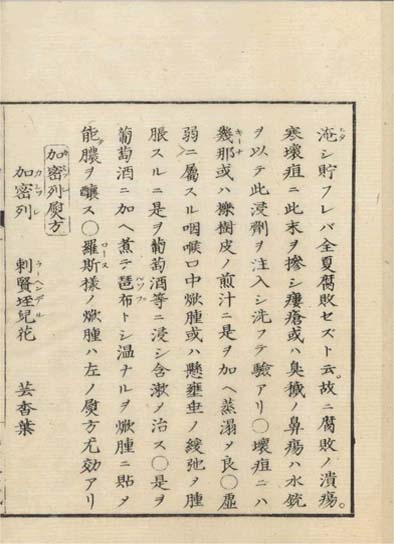 淹シ貯フレバ全夏腐敗セズト云。故ニ腐敗ノ潰瘍。
寒壊疽ニ此末ヲ摻シ瘻瘡或ハ臭穢ノ鼻瘍ハ水銃
ヲ以テ此浸劑ヲ注入シ洗フテ驗アリ○壊疽ニハ
幾那或ハ檪樹皮ノ煎汁ニ是ヲ加ヘ蒸溻メ良○虚
弱ニ屬スル咽喉口中焮腫或ハ懸壅垂ノ緩弛メ腫
脹スルニ是ヲ葡萄酒等ニ浸シ含漱メ治ス○是ヲ
葡萄酒ニ加ヘ煮テ琶布トシ温ナルヲ焮腫ニ貼メ
能膿ヲ醸ス○羅斯様ノ焮腫ハ左ノ熨方尤効アリ
加密列熨方
加密列 刺賢垤兒花 芸香葉